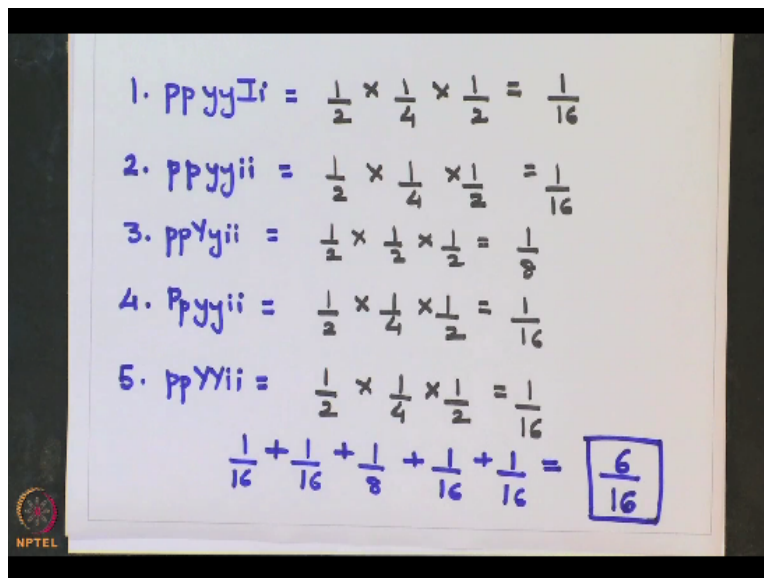 1. ppyyIi = 1/2 × 1/4 × 1/2 = 1/16
2. ppyyii = 1/2 × 1/4 × 1/2 = 1/16
3. ppYyii = 1/2 × 1/2 × 1/2 = 1/8
4. Ppyyii = 1/2 × 1/4 × 1/2 = 1/16
5. ppYYii = 1/2 × 1/4 × 1/2 = 1/16
1/16 + 1/16 + 1/8 + 1/16 + 1/16 = 6/16
NPTEL